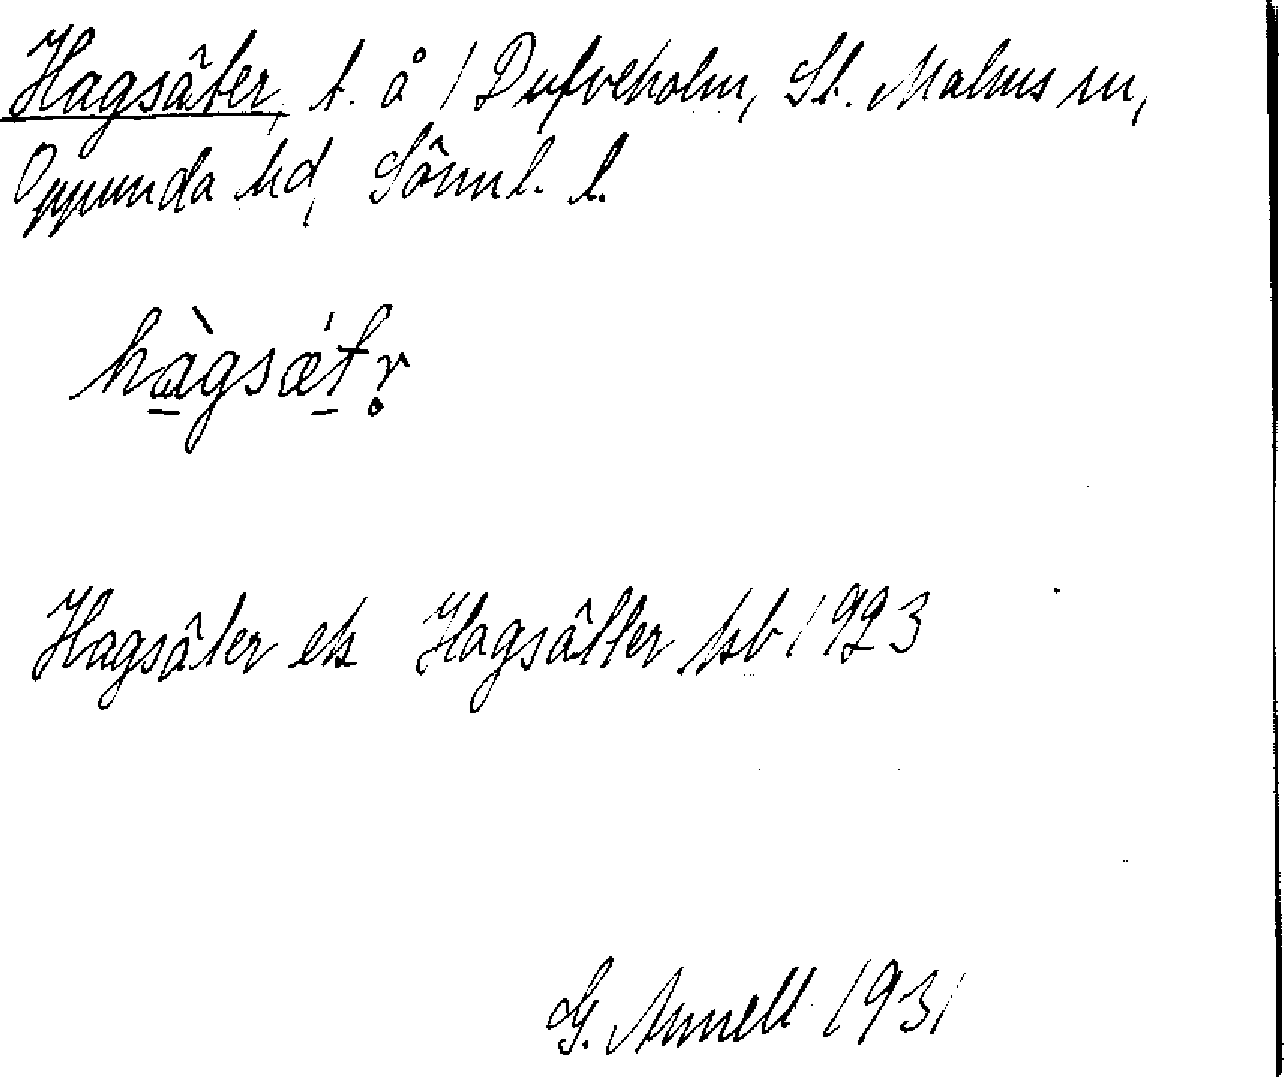 Hagsäter, t. å 1 Dufveholm, St. Malms sn,
Oppunda hd, Södml. l.
hàgsæ̀tr̥
Hagsäter ek Hagsätter kb 1923
G. Annell 1931